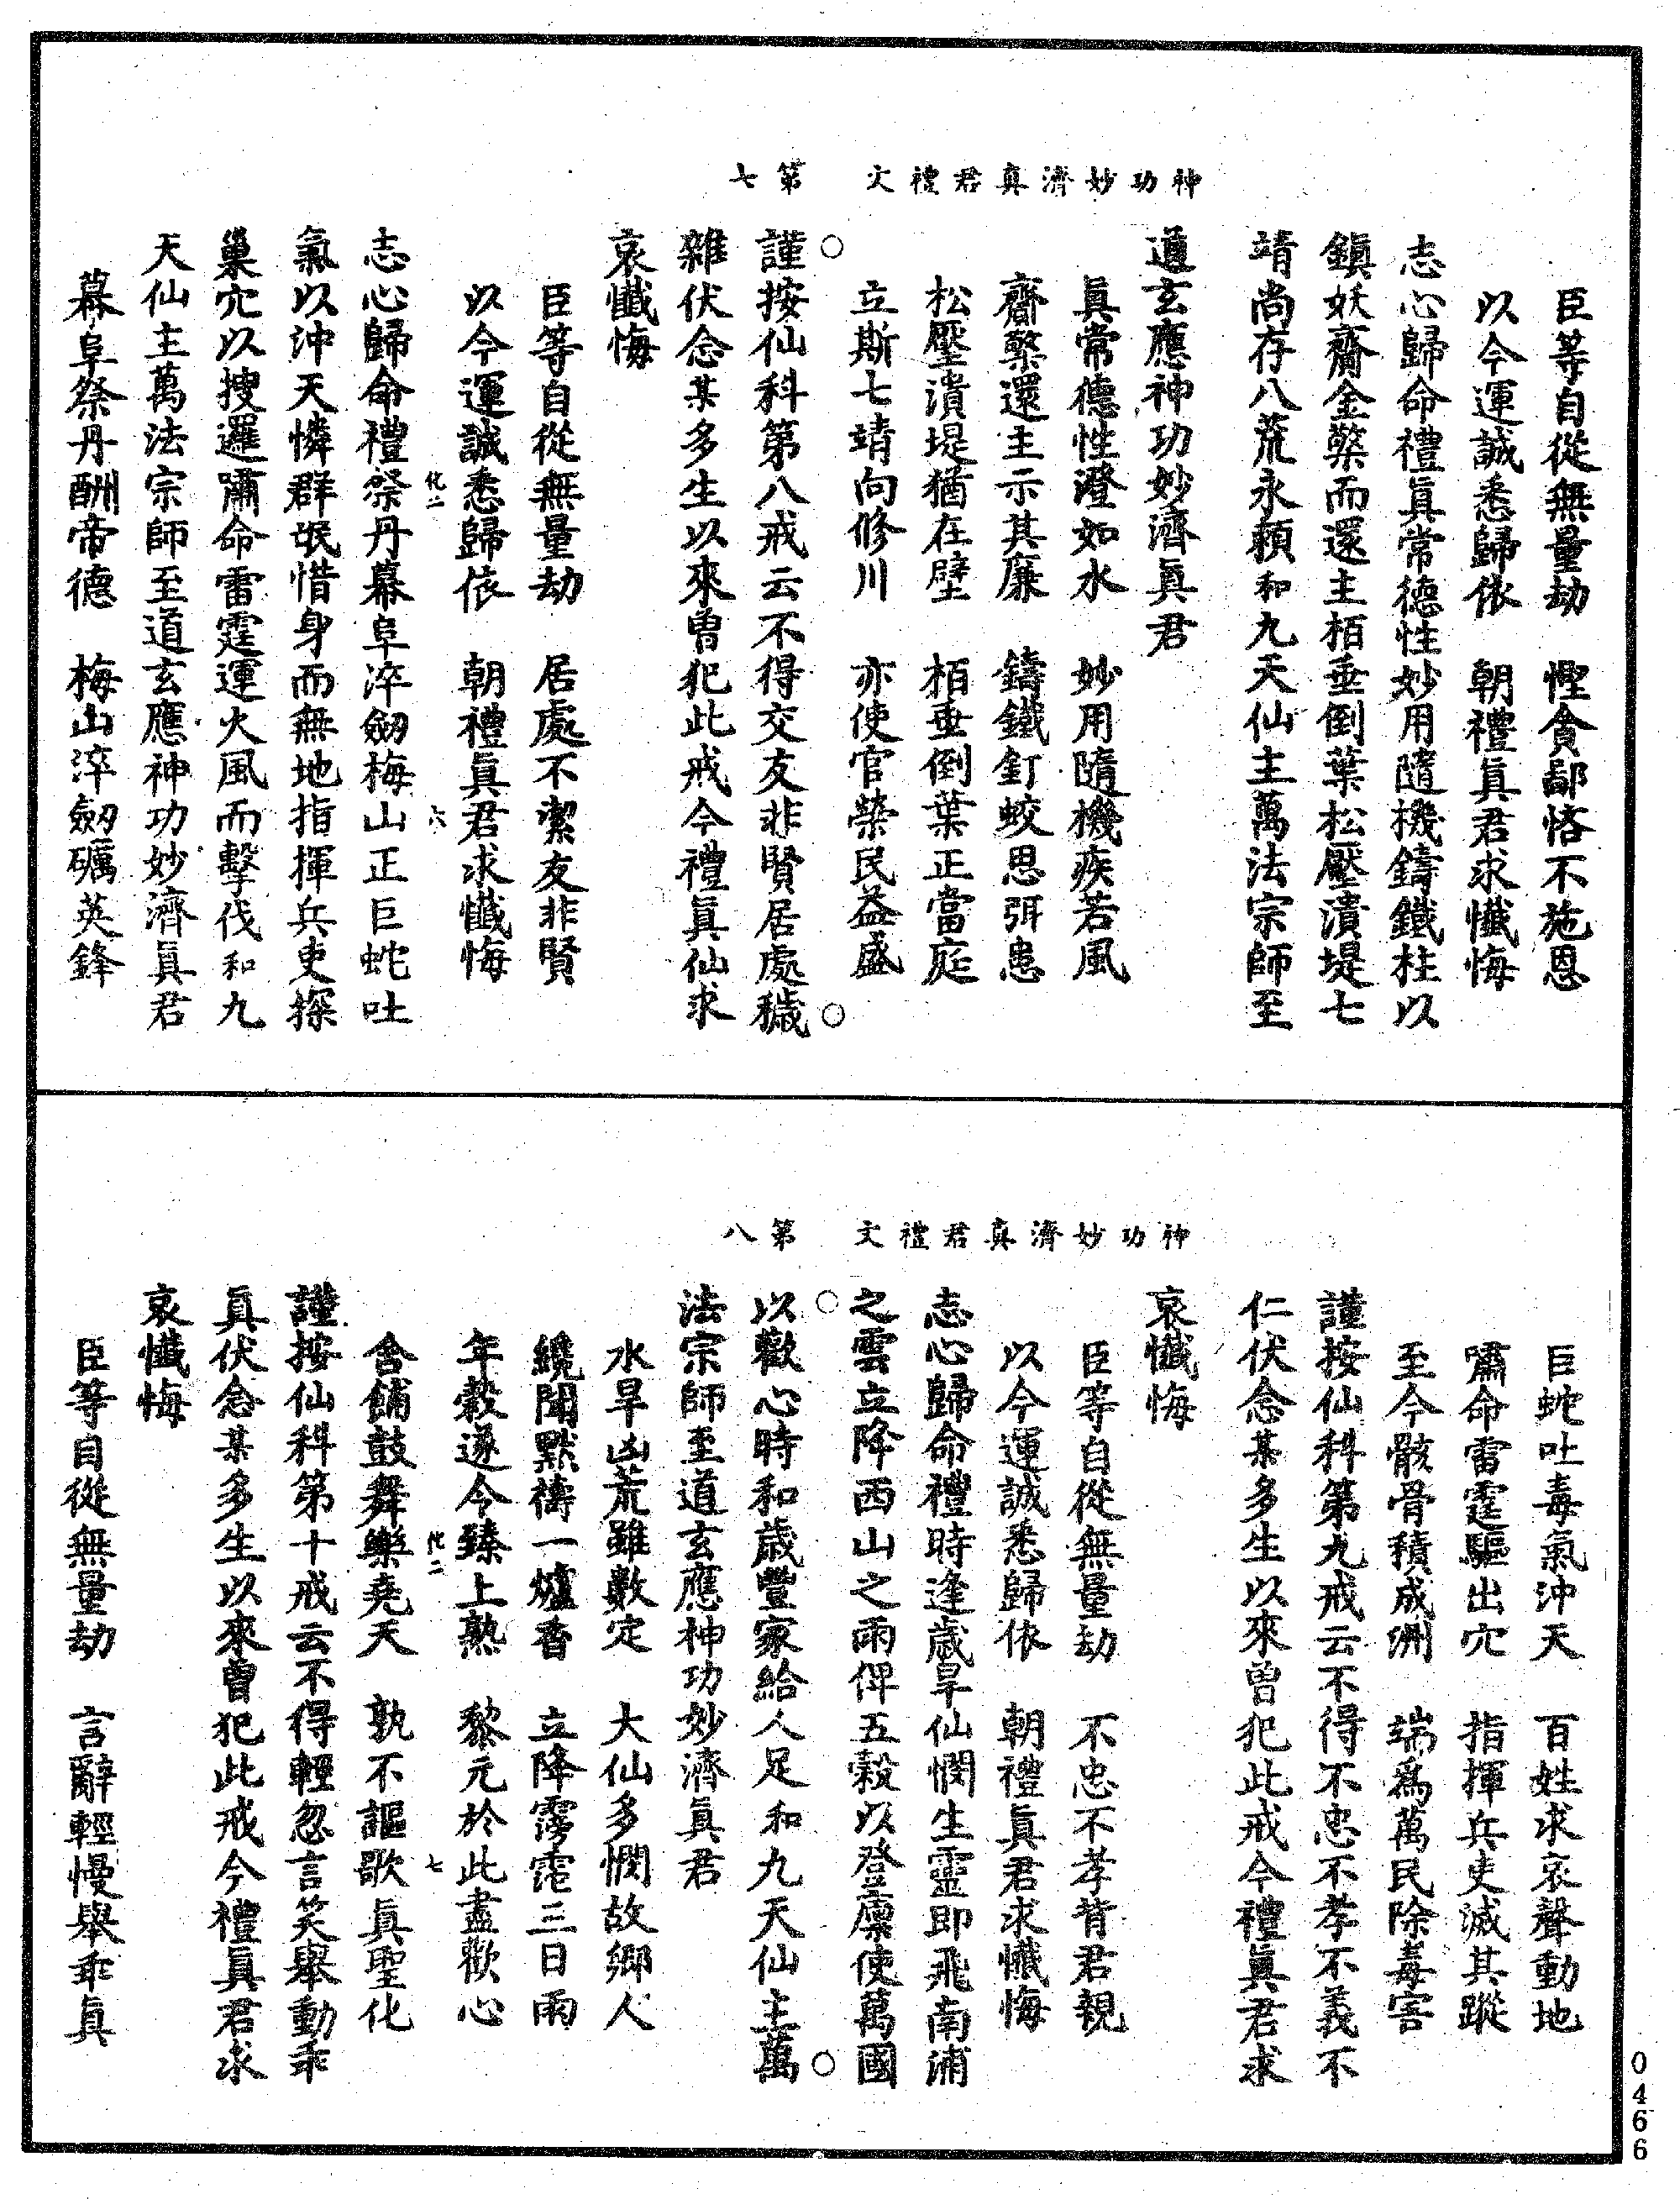 臣等自從無量劫　慳貪鄙悋不施恩
以今運誠悉歸依　朝禮眞君求懺悔
志心歸命禮眞常德性妙用隨機鑄鐵柱以
鎭妖齋金檠而還主栢垂倒葉松壓潰堤七
靖尚存八荒永賴和九天仙主萬法宗師至
道玄應神功妙濟眞君
眞常德性澄如水　妙用隨機疾若風
齋檠還主示其廉　鑄鐵釘蛟思弭患
松壓潰堤猶在壁　栢垂倒葉正當庭
立斯七靖向修川　亦使官榮民益盛
神功妙濟真君禮文　第七
謹按仙科第八戒云不得交友非賢居處穢
雜伏念某多生以來曽犯此戒今禮眞仙求
哀懺悔
臣等自從無量劫　居處不潔友非賢
以今運誠悉歸依　朝禮眞君求懺悔
化二　六
志心歸命禮祭丹幕阜淬劒梅山正巨蛇吐
氣以沖天憐群氓惜身而無地指揮兵吏探
巢穴以搜邏嘯命雷霆運火風而擊伐和九
天仙主萬法宗師至道玄應神功妙濟眞君
幕阜祭丹酬帝德　梅山淬劒礪英鋒
巨蛇吐毒氣沖天　百姓求哀聲動地
嘯命雷霆驅出穴　指揮兵吏滅其蹤
至今骸骨積成洲　端爲萬民除毒害
謹按仙科第九戒云不得不忠不孝不義不
仁伏念某多生以來曽犯此戒今禮眞君求
哀懺悔
臣等自從無量劫　不忠不孝背君親
以今運誠悉歸依　朝禮眞君求懺悔
志心歸命禮時逢歲旱仙憫生靈即飛南浦
之雲立降西山之雨俾五穀以登廩使萬國
神功妙濟真君禮文　第八
以歡心時和歲豐家給人足和九天仙主萬
法宗師至道玄應神功妙濟眞君
水旱凶荒雖數定　大仙多憫故鄉人
纔聞默禱一爐香　立降霶霈三日雨
年穀遂令臻上熟　黎元於此盡歡心
化二　七
含餔鼓舞樂堯天　孰不謳歌眞聖化
謹按仙科第十戒云不得輕忽言笑舉動乖
眞伏念某多生以來曽犯此戒今禮眞君求
哀懺悔
臣等自從無量劫　言辭輕慢舉乖眞
0466